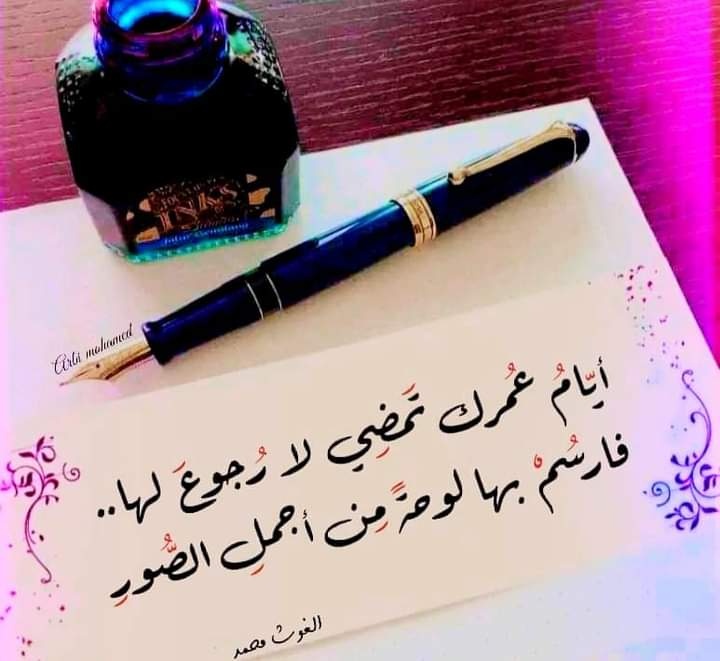 INKS
Arbi mohamed
أيّامُ عُمرك تَمضِي لا رُجوعَ لها..
فارسُمْ بها لوحةً مِن أجملِ الصُّورِ
الغوث محمد